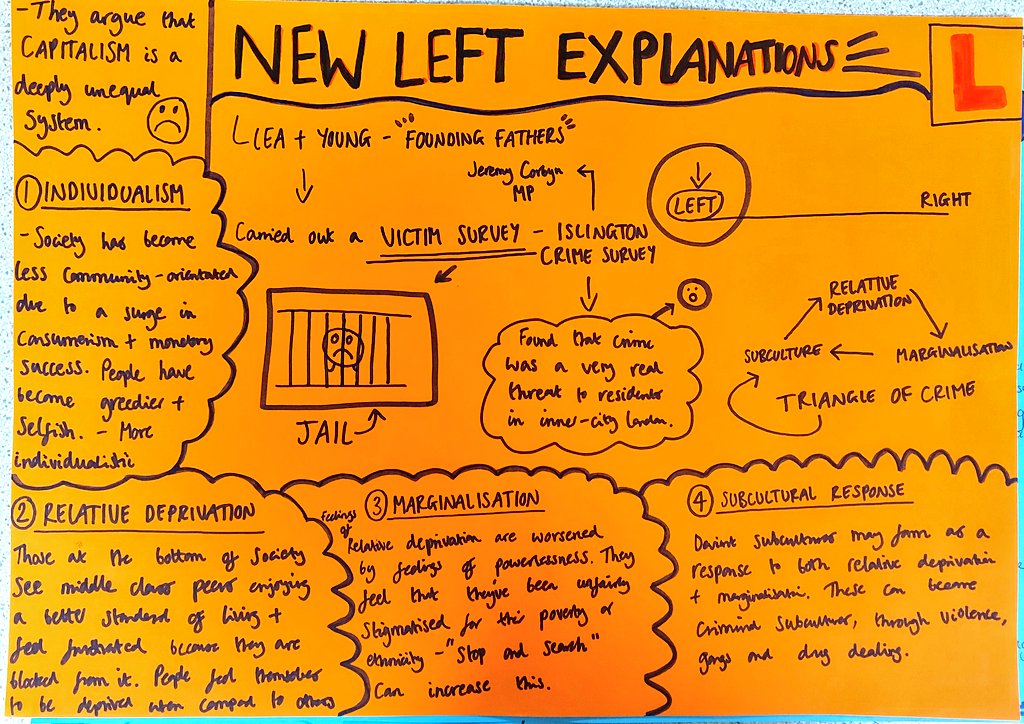 - They argue that
CAPITALISM is a
deeply unequal
System.
NEW LEFT EXPLANATIONS
L
LEA + YOUNG - "FOUNDING FATHERS"
Jeremy Corbyn
MP
LEFT
RIGHT
Carried out a VICTIM SURVEY - ISLINGTON
CRIME SURVEY
JAIL
Found that crime
was a very real
threat to residents
in inner-city London.
RELATIVE
DEPRIVATION
MARGINALISATION
SUBCULTURE
TRIANGLE OF CRIME
① INDIVIDUALISM
- Society has become
less community-orientated
due to a surge in
Consumerism + monetary
success. People have
become greedier +
Selfish. - More
individualistic
② RELATIVE DEPRIVATION
Those at the bottom of society
See middle class peers enjoying
a better standard of living +
feel frustrated because they are
blocked from it. People feel themselves
to be deprived when compared to others
③ MARGINALISATION
feelings of
Relative deprivation are worsened
by feelings of powerlessness. They
feel that they've been unfairly
Stigmatised for their poverty or
ethnicity - "Stop and search"
Can increase this.
④ SUBCULTURAL RESPONSE
Deviant subcultures may form as a
response to both relative deprivation
+ marginalisation. These can become
Criminal Subcultures, through violence,
gangs and drug dealing.